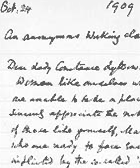 Oct. 24 1909
An anonymous Working cla
Dear Lady Constance Lytton
Women like ourselves w
are unable to be a pla
Sincerely appreciate the no
of those like yourself, who
who are ready to face the
inflicted by the